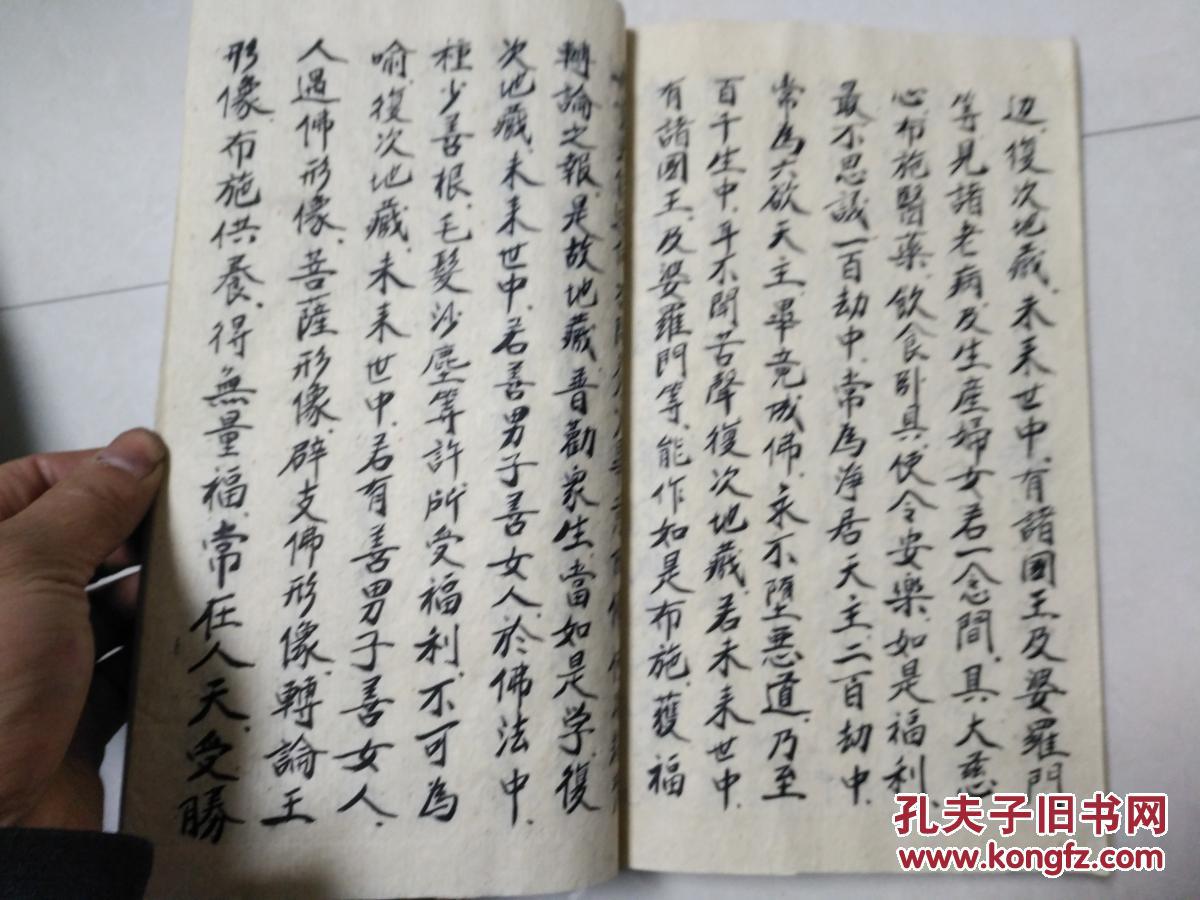 辺、復次地蔵、未来世中、有諸國王及婆羅門
等、見諸老病、及生産婦女、若一念間、具大慈
心、布施醫藥、飲食卧具、使令安樂、如是福利
最不思議、一百劫中、常為浄居天主、二百劫中、
常為六欲天主、畢竟成佛、永不堕惡道、乃至
百千生中、耳不聞苦聲、復次地蔵、若未来世中、
有諸國王、及婆羅門等、能作如是布施、獲福
轉論之報、是故地蔵、普勸衆生、當如是学、復
次地蔵、未来世中、若善男子善女人、於佛法中、
種少善根、毛髮沙塵等許、所受福利、不可為
喻、復次地蔵、未来世中、若有善男子善女人、
人遇佛形像、菩薩形像、辟支佛形像、轉論王
形像、布施供養、得無量福、常在人天、受勝
孔夫子旧书网
www.kongfz.com